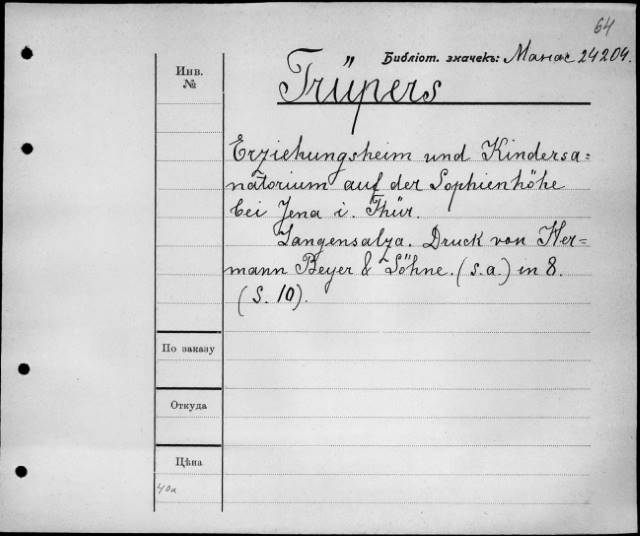 64
Библіот. значекъ: Манас 24204.
Инв.
№
Trüpers
Erziehungsheim und Kindersa=
natorium auf der Sophienhöhe
bei Jena i. Thür.
Langensalza. Druck von Her=
mann Beyer & Söhne. (s.a.) in 8.
(S. 10).
По заказу
Откуда
Цѣна